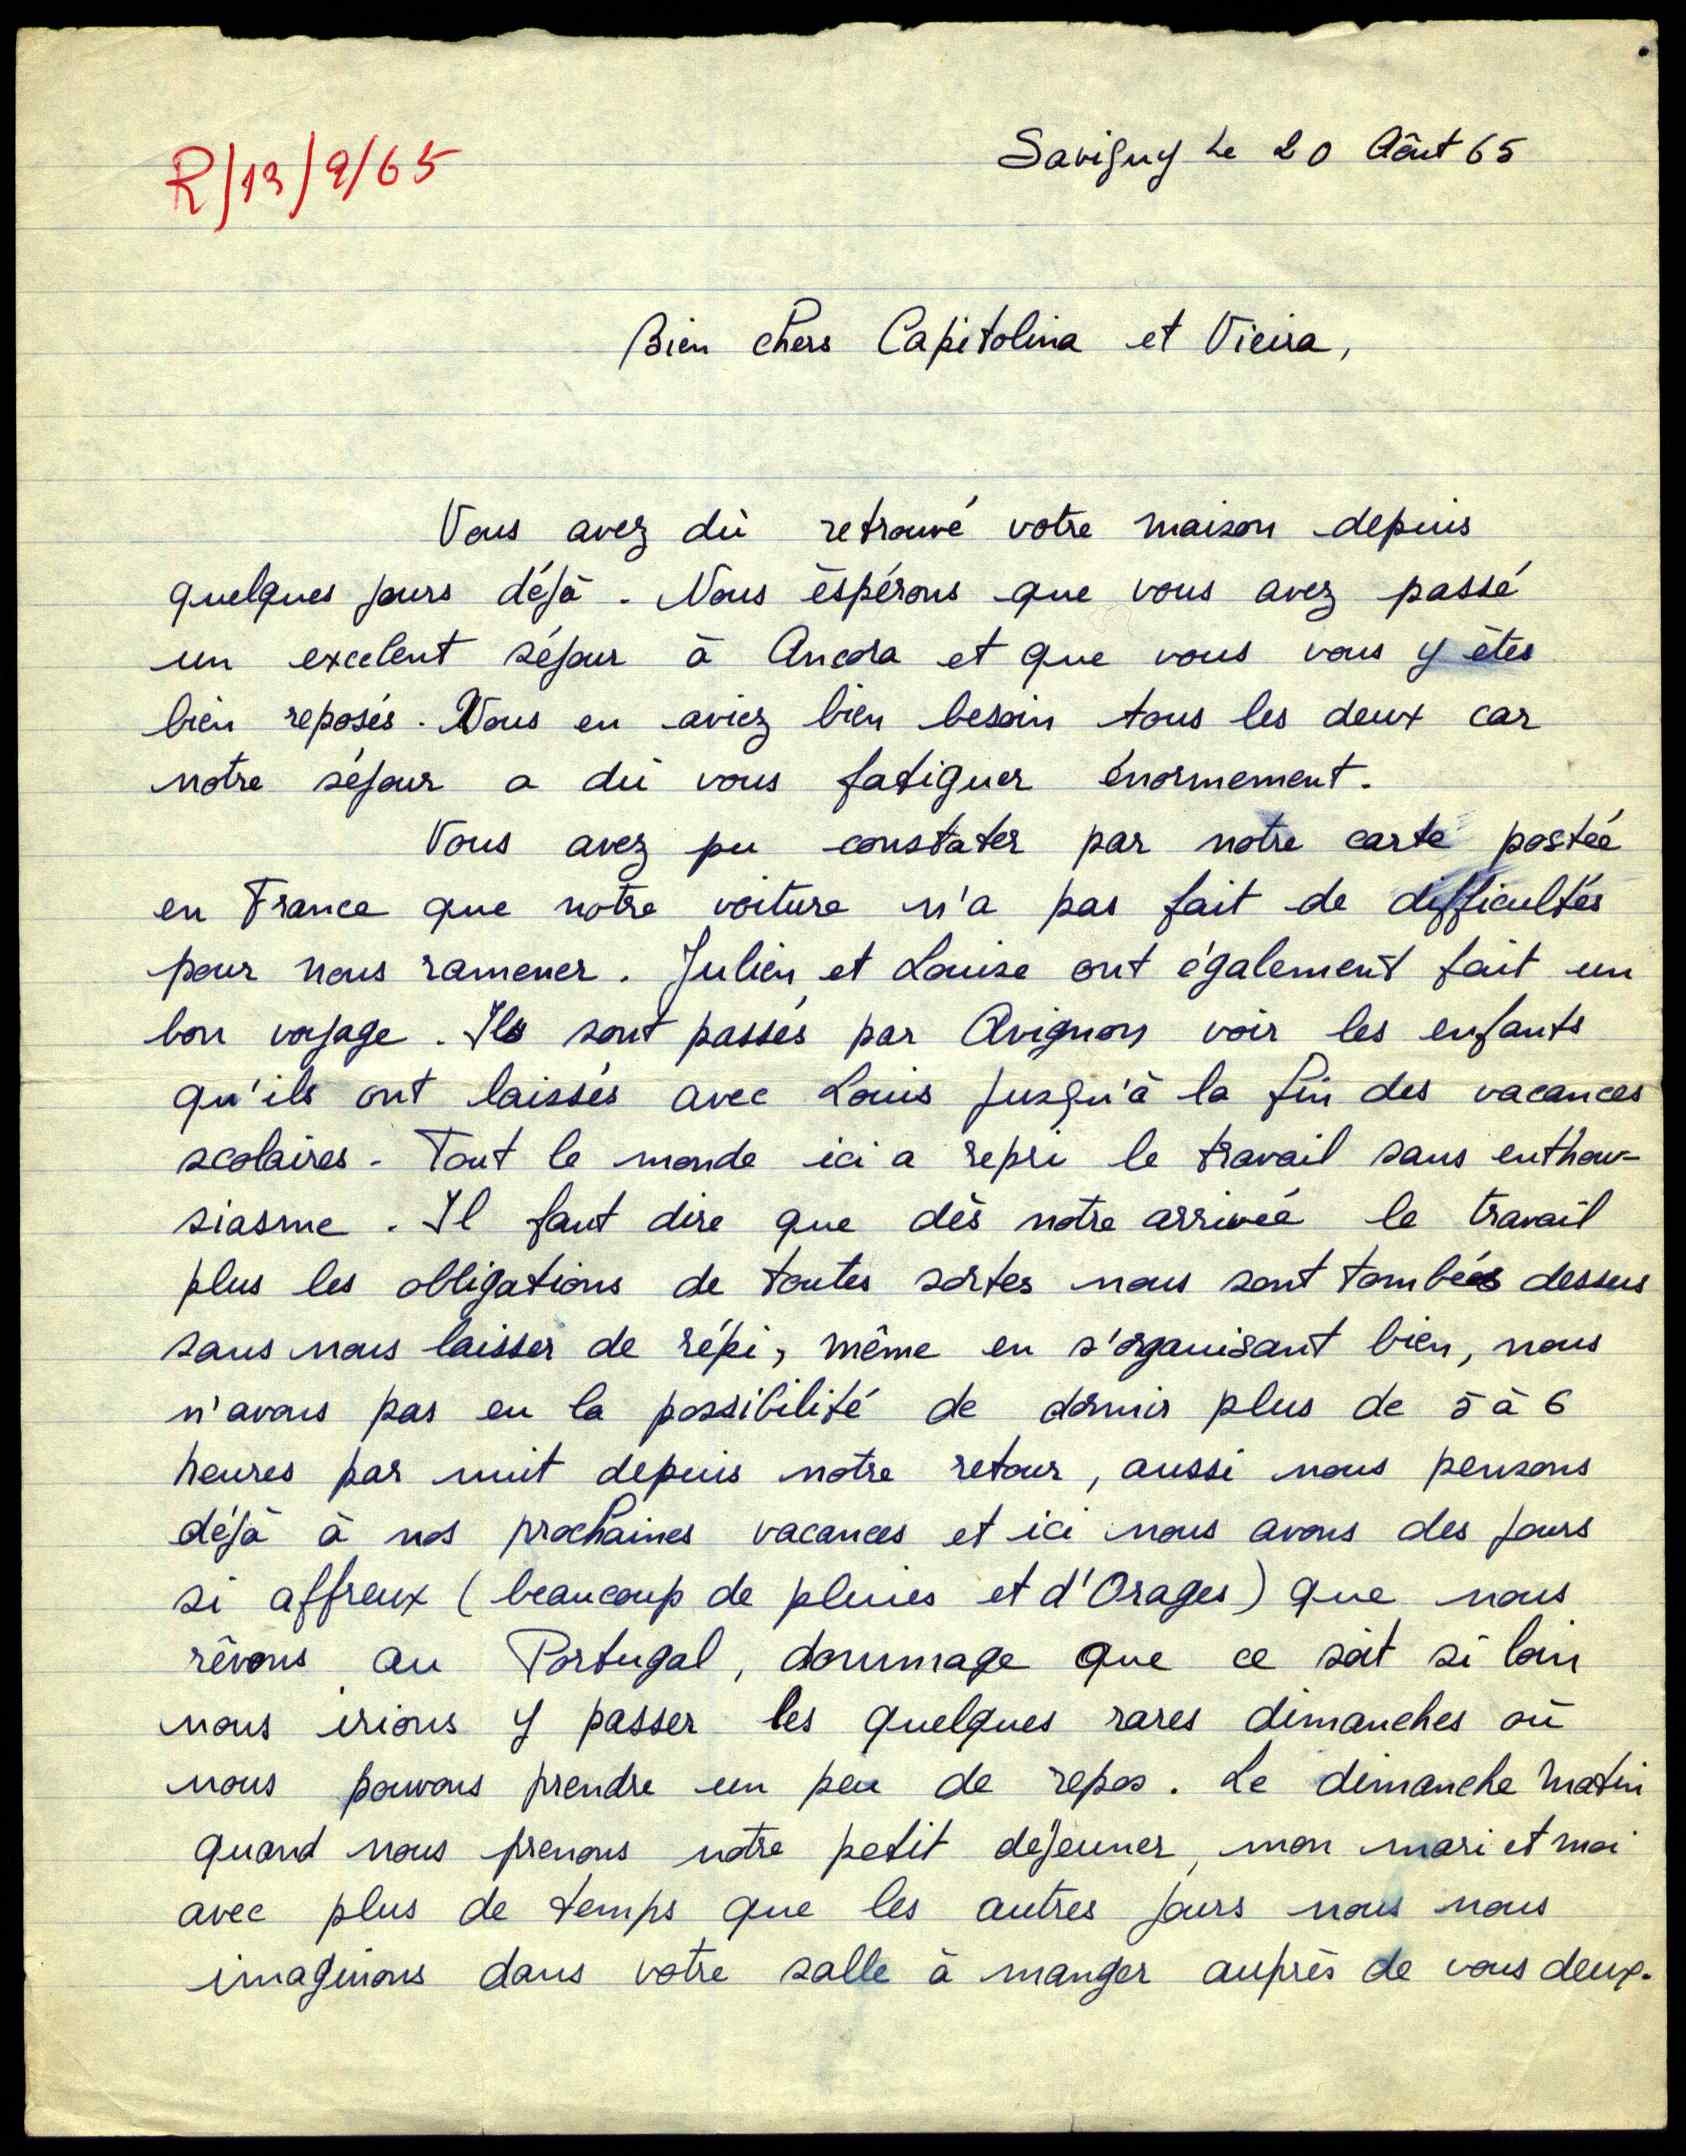 R/13/9/65
Savigny Le 20 Aôut 65
Bien chers Capitolina et Vieira,
Vous avez dû retrouvé votre maison depuis
quelques jours déjà. Nous èspérons que vous avez passé
un excelent séjour à Ancora et que vous vous y êtes
bien reposés. Vous en aviez bien besoin tous les deux car
notre séjour a dû vous fatiguer énormement.
Vous avez pu constater par notre carte postée
en France que notre voiture n'a pas fait de difficultés
pour nous ramener. Julien et Louise ont également fait un
bon voyage. Ils sont passés par Avignon voir les enfants
qu'ils ont laissés avec Louis jusqu'à la fin des vacances
scolaires. Tout le monde ici a repri le travail sans enthou-
siasme. Il faut dire que dès notre arrivée le travail
plus les obligations de toutes sortes nous sont tombés dessus
sans nous laisser de répi, même en s'organisant bien, nous
n'avons pas eu la possibilité de dormir plus de 5 à 6
heures par nuit depuis notre retour, aussi nous pensons
déjà à nos prochaines vacances et ici nous avons des jours
si affreux (beaucoup de pluies et d'Orages) que nous
rêvons au Portugal, dommage que ce soit si loin
nous irions y passer les quelques rares dimanches où
nous pouvons prendre un peu de repos. Le dimanche matin
quand nous prenons notre petit déjeuner, mon mari et moi
avec plus de temps que les autres jours nous nous
imaginons dans votre salle à manger auprès de vous deux.